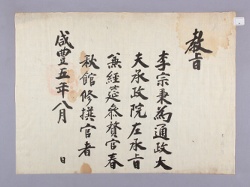 教旨
李宗秉爲通政大
夫承政院左承旨
兼經筵參贊官春
秋館修撰官者
咸豐五年八月　日